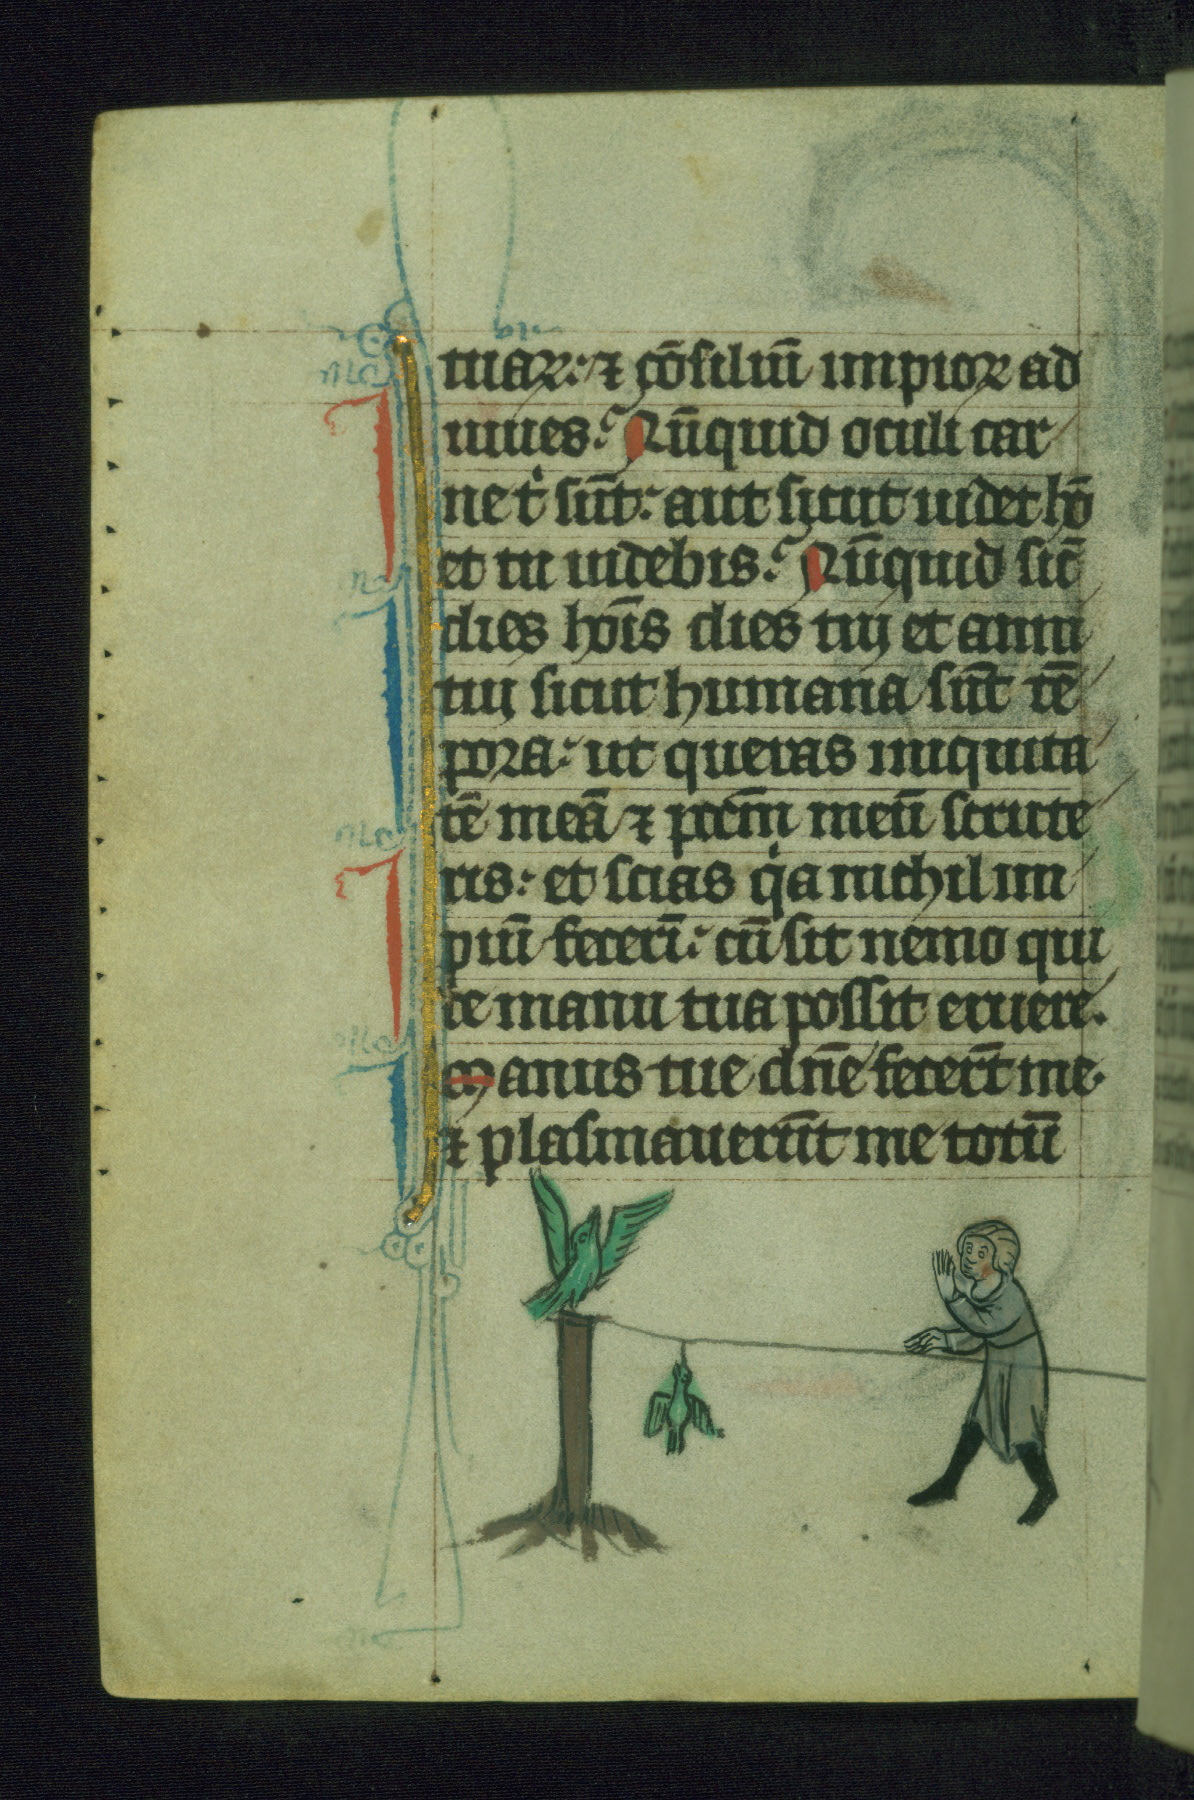 tuaꝝ: ⁊ cōsiliū impioꝝ ad
iuues: Nūquid oculi car
nei t' sūt: aut sicut uidet hō
et tu uidebis: Nūquid sic̄
dies hoīs dies tui et anni
tui sicut humana sūt tē
pora: ut queras iniquita
tē meā ⁊ pctm̄ meū scrute
ris: et scias qͥa nichil im
piū fecerī: cū sit nemo qui
de manu tua possit eruere.
Manus tue dn̄e fecerūt me.
⁊ plasmauerūt me totū